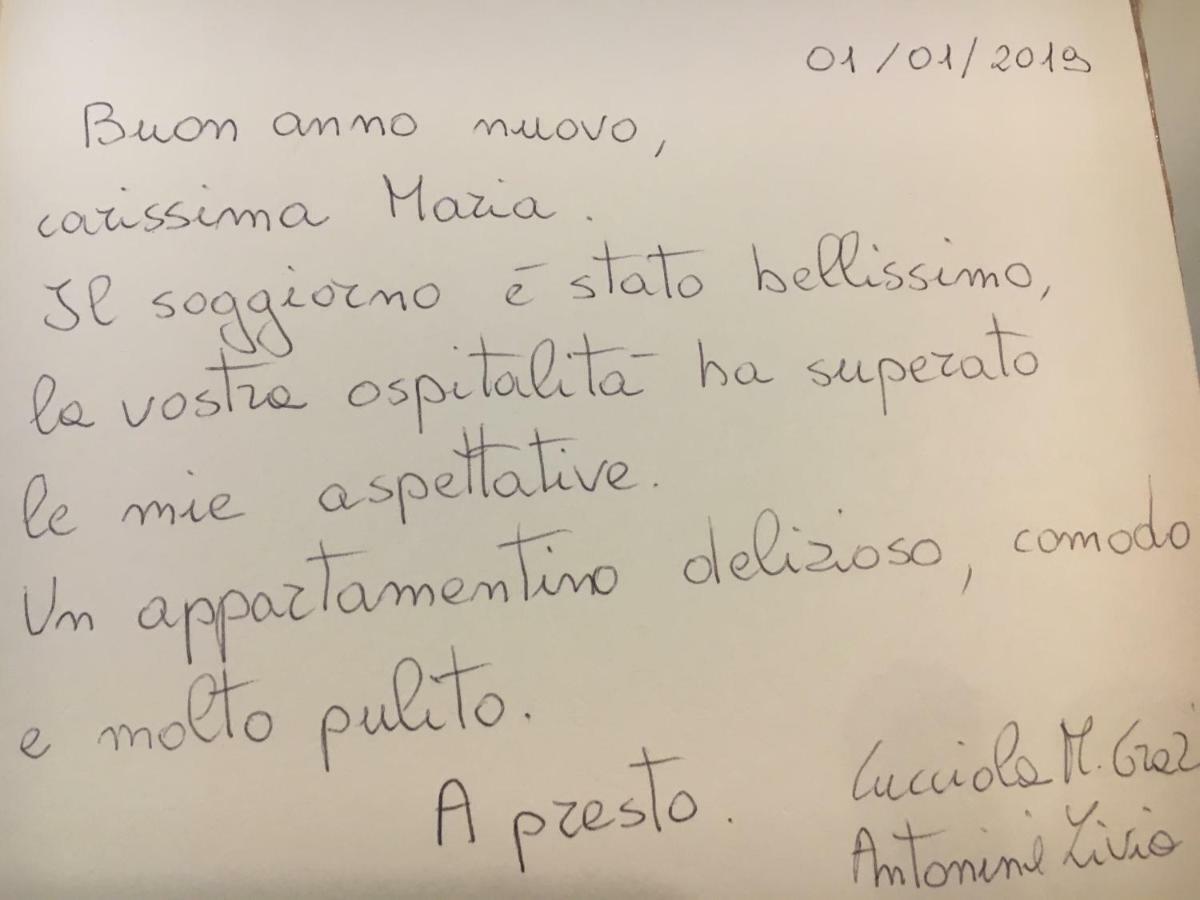 01/01/2019
Buon anno nuovo,
carissima Maria.
Il soggiorno è stato bellissimo,
la vostra ospitalità ha superato
le mie aspettative.
Un appartamentino delizioso, comodo
e molto pulito.
A presto.
M. Graz
Antonini Livio